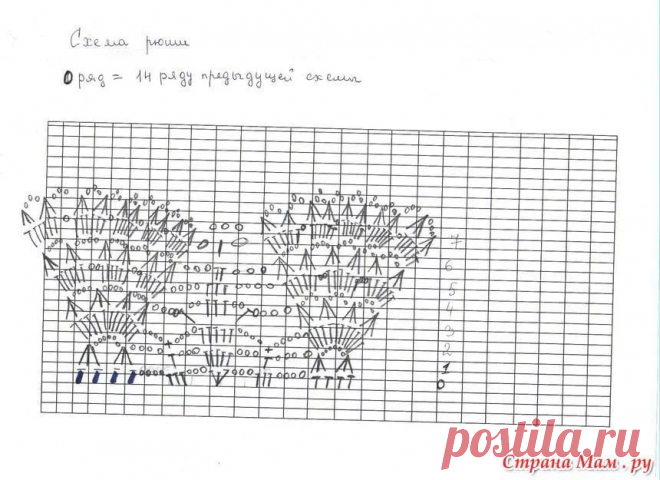 Схема рюши
0 ряд = 14 ряду предыдущей схемы
7
6
5
4
3
2
1
0
postila.ru
Страна Мам.ру